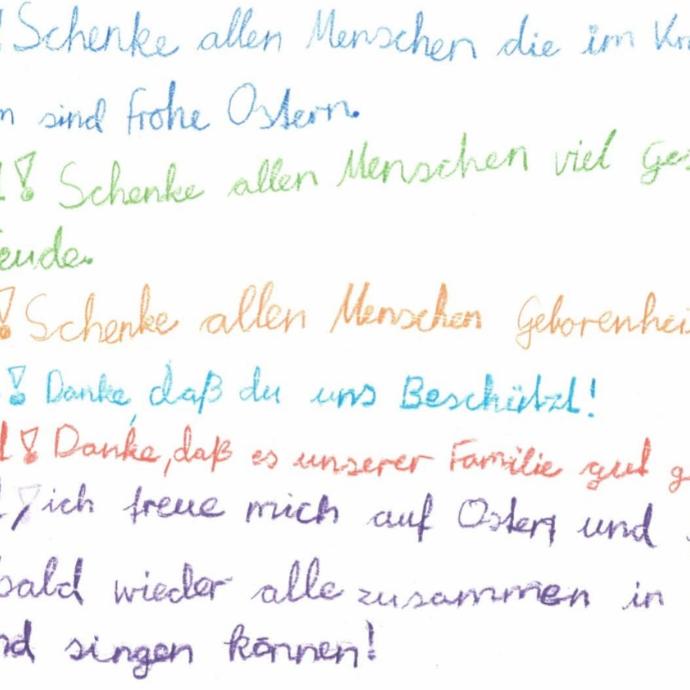 ! Schenke allen Menschen die im Kr
n sind frohe Ostern.
! Schenke allen Menschen viel Ges
eude.
! Schenke allen Menschen Geborenhei
! Danke, daß du uns Beschützt!
! Danke, daß es unserer Familie gut g
! ich freue mich auf Ostern und
bald wieder alle zusammen in
nd singen können!